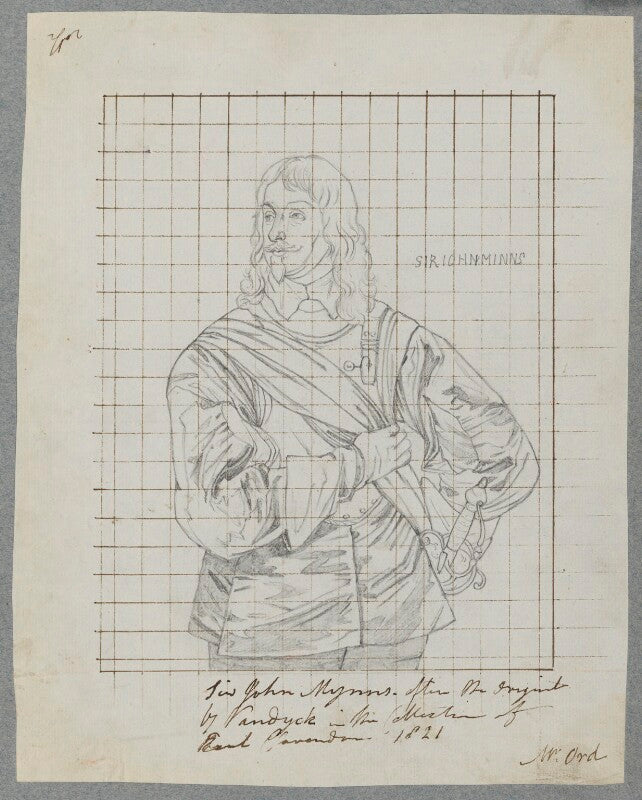 SIR IOHN MINNS
Sir John Mynns. after the original
by Vandyck in the Collection of
Earl Clarendon 1821
Mr. Ord